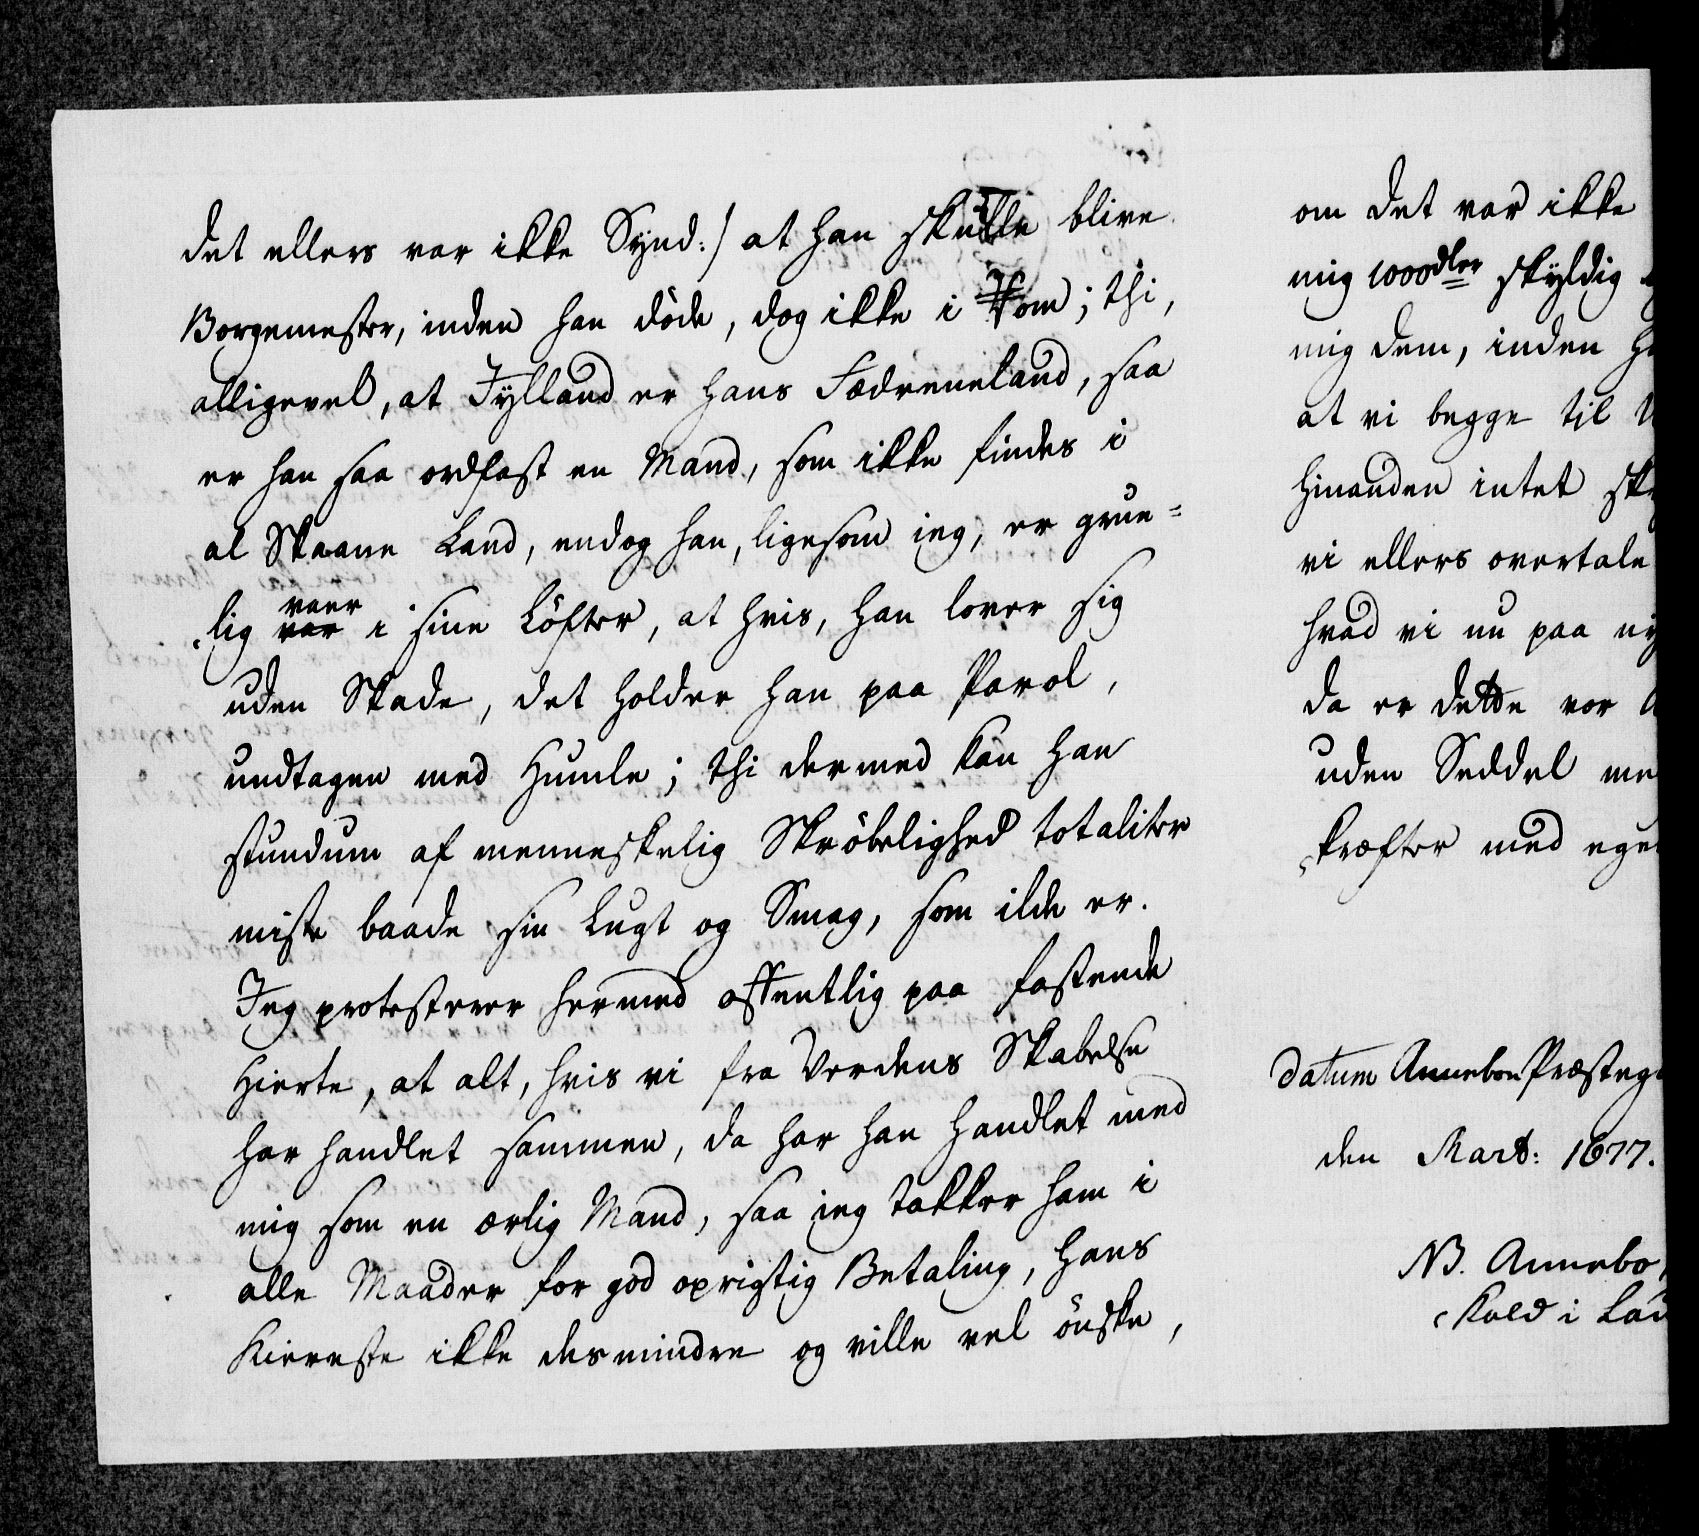 det ellers var ikke Synd:/ at han skulle blive
Borgemester, inden han døde, dog ikke i Rom; thi,
alligevel, at Jylland er hans Fædreneland, saa
er han saa ordfast en Mand, som ikke findes i
al Skaane Land, endog han, ligesom ieg, er grue=
lig vaer i sine Løfter, at hvis, han lover sig
uden Skade, det holder han paa Parol,
undtagen med Humle; thi dermed kan han
stundum af menneskelig Skrøbelighed totaliter
miste baade sin Lugt og Smag, som ilde er.
Jeg protesterer hermed offentlig paa fastende
Hierte, at alt, hvis vi fra Verdens Skabelse
har handlet sammen, da har han handlet med
mig som en ærlig Mand, saa ieg takker ham i
alle Maader for god oprigtig Betaling, hans
Kiereste ikke desmindre og ville vel ønske,
om det var ikke
mig 1000dler skyldig
mig dem, inden
at vi begge til
hinanden intet
vi ellers overtale
hvad vi nu paa
da er dette vor
uden Seddel
kræfter med
datum Anneboe
den Mart: 1677.
NB. Annebo
Kald i